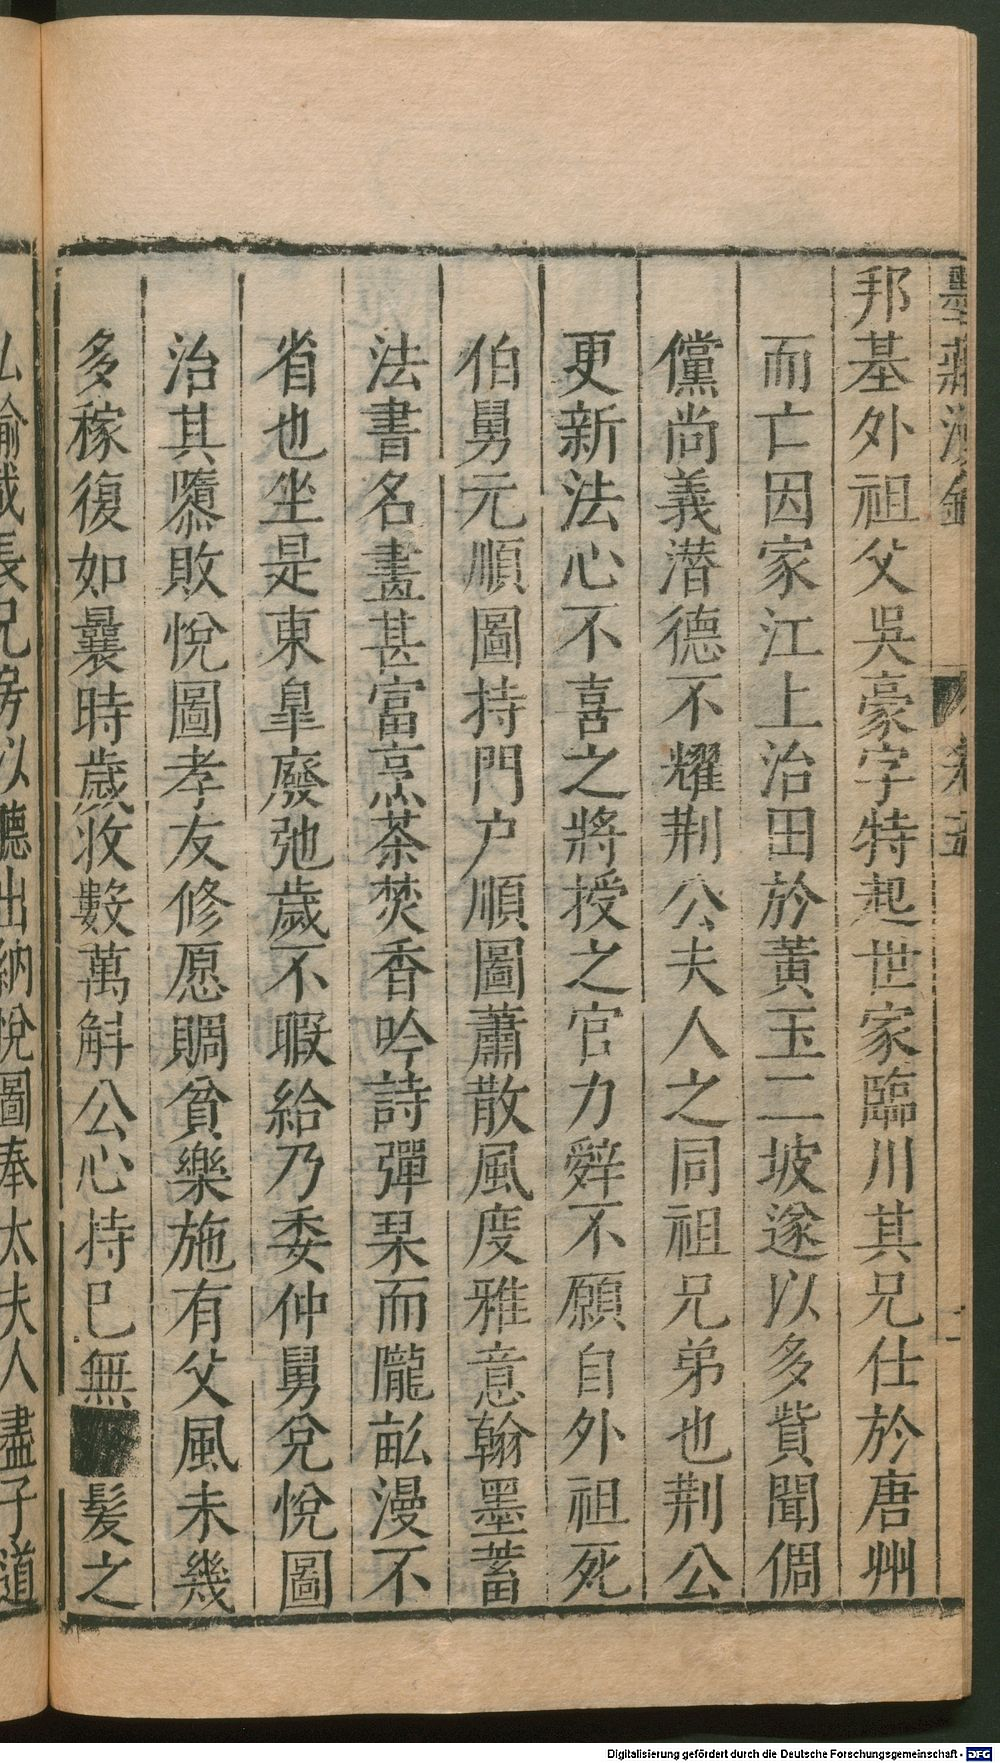 墨莊漫錄
卷五
邦基外祖父吳豪字特起世家臨川其兄仕於唐州
而亡因家江上治田於黃玉二坡遂以多貲聞倜
儻尚義潛德不耀荆公夫人之同祖兄弟也荆公
更新法心不喜之將授之官力辭不願自外祖死
伯舅元順圖持門户順圖蕭散風度雅意翰墨蓄
法書名畫甚富烹茶焚香吟詩彈琹而隴畆漫不
省也坐是東臯廢弛歲不暇給乃委仲舅兌悅圖
治其隳敗悅圖孝友修愿賙貧樂施有父風未幾
多稼復如曩時歲收數萬斛公心持已無
髪之
長兄房以聽出納悅圖奉太夫人盡子道
Digitalisierung gefördert durch die Deutsche Forschungsgemeinschaft - DFG